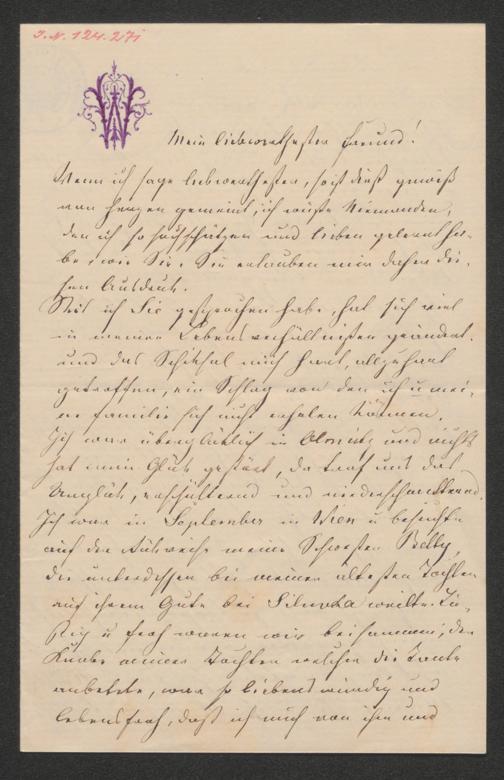 I.N. 124.271
W
Mein liebwerthester Freund!
Wenn ich sage liebwerthester, so ist dieß gewiß
von Herzen gemeint, ich wüßte Niemanden,
den ich so hochschätzen und lieben gelernt ha-
be wie Sie. Sie erlauben mir daher die-
sen Ausdruck.
Seit ich Sie gesprochen habe, hat sich viel
in meinen Lebensverhältnissen geändert.
und das Schiksal mich hart, allzuhart
getroffen, ein Schlag von den ich u mei-
ne Familie sich nicht erholen können.
Ich war überglücklich in Olmütz und nichts
hat mein Glück gestört, da traf uns das
Unglück, erschütternd und niederschmetternd.
Ich war in September in Wien u besuchte
auf der Rükreise meine Schwester Betty,
die unterdessen bei meiner ältesten Tochter
auf ihrem Gute bei weilte.
u froh waren wir beisammen, der
Knabe meiner Tochter welcher die Tante
anbetete, war so liebenswürdig und
lebensfroh, daß ich mich von ihm und